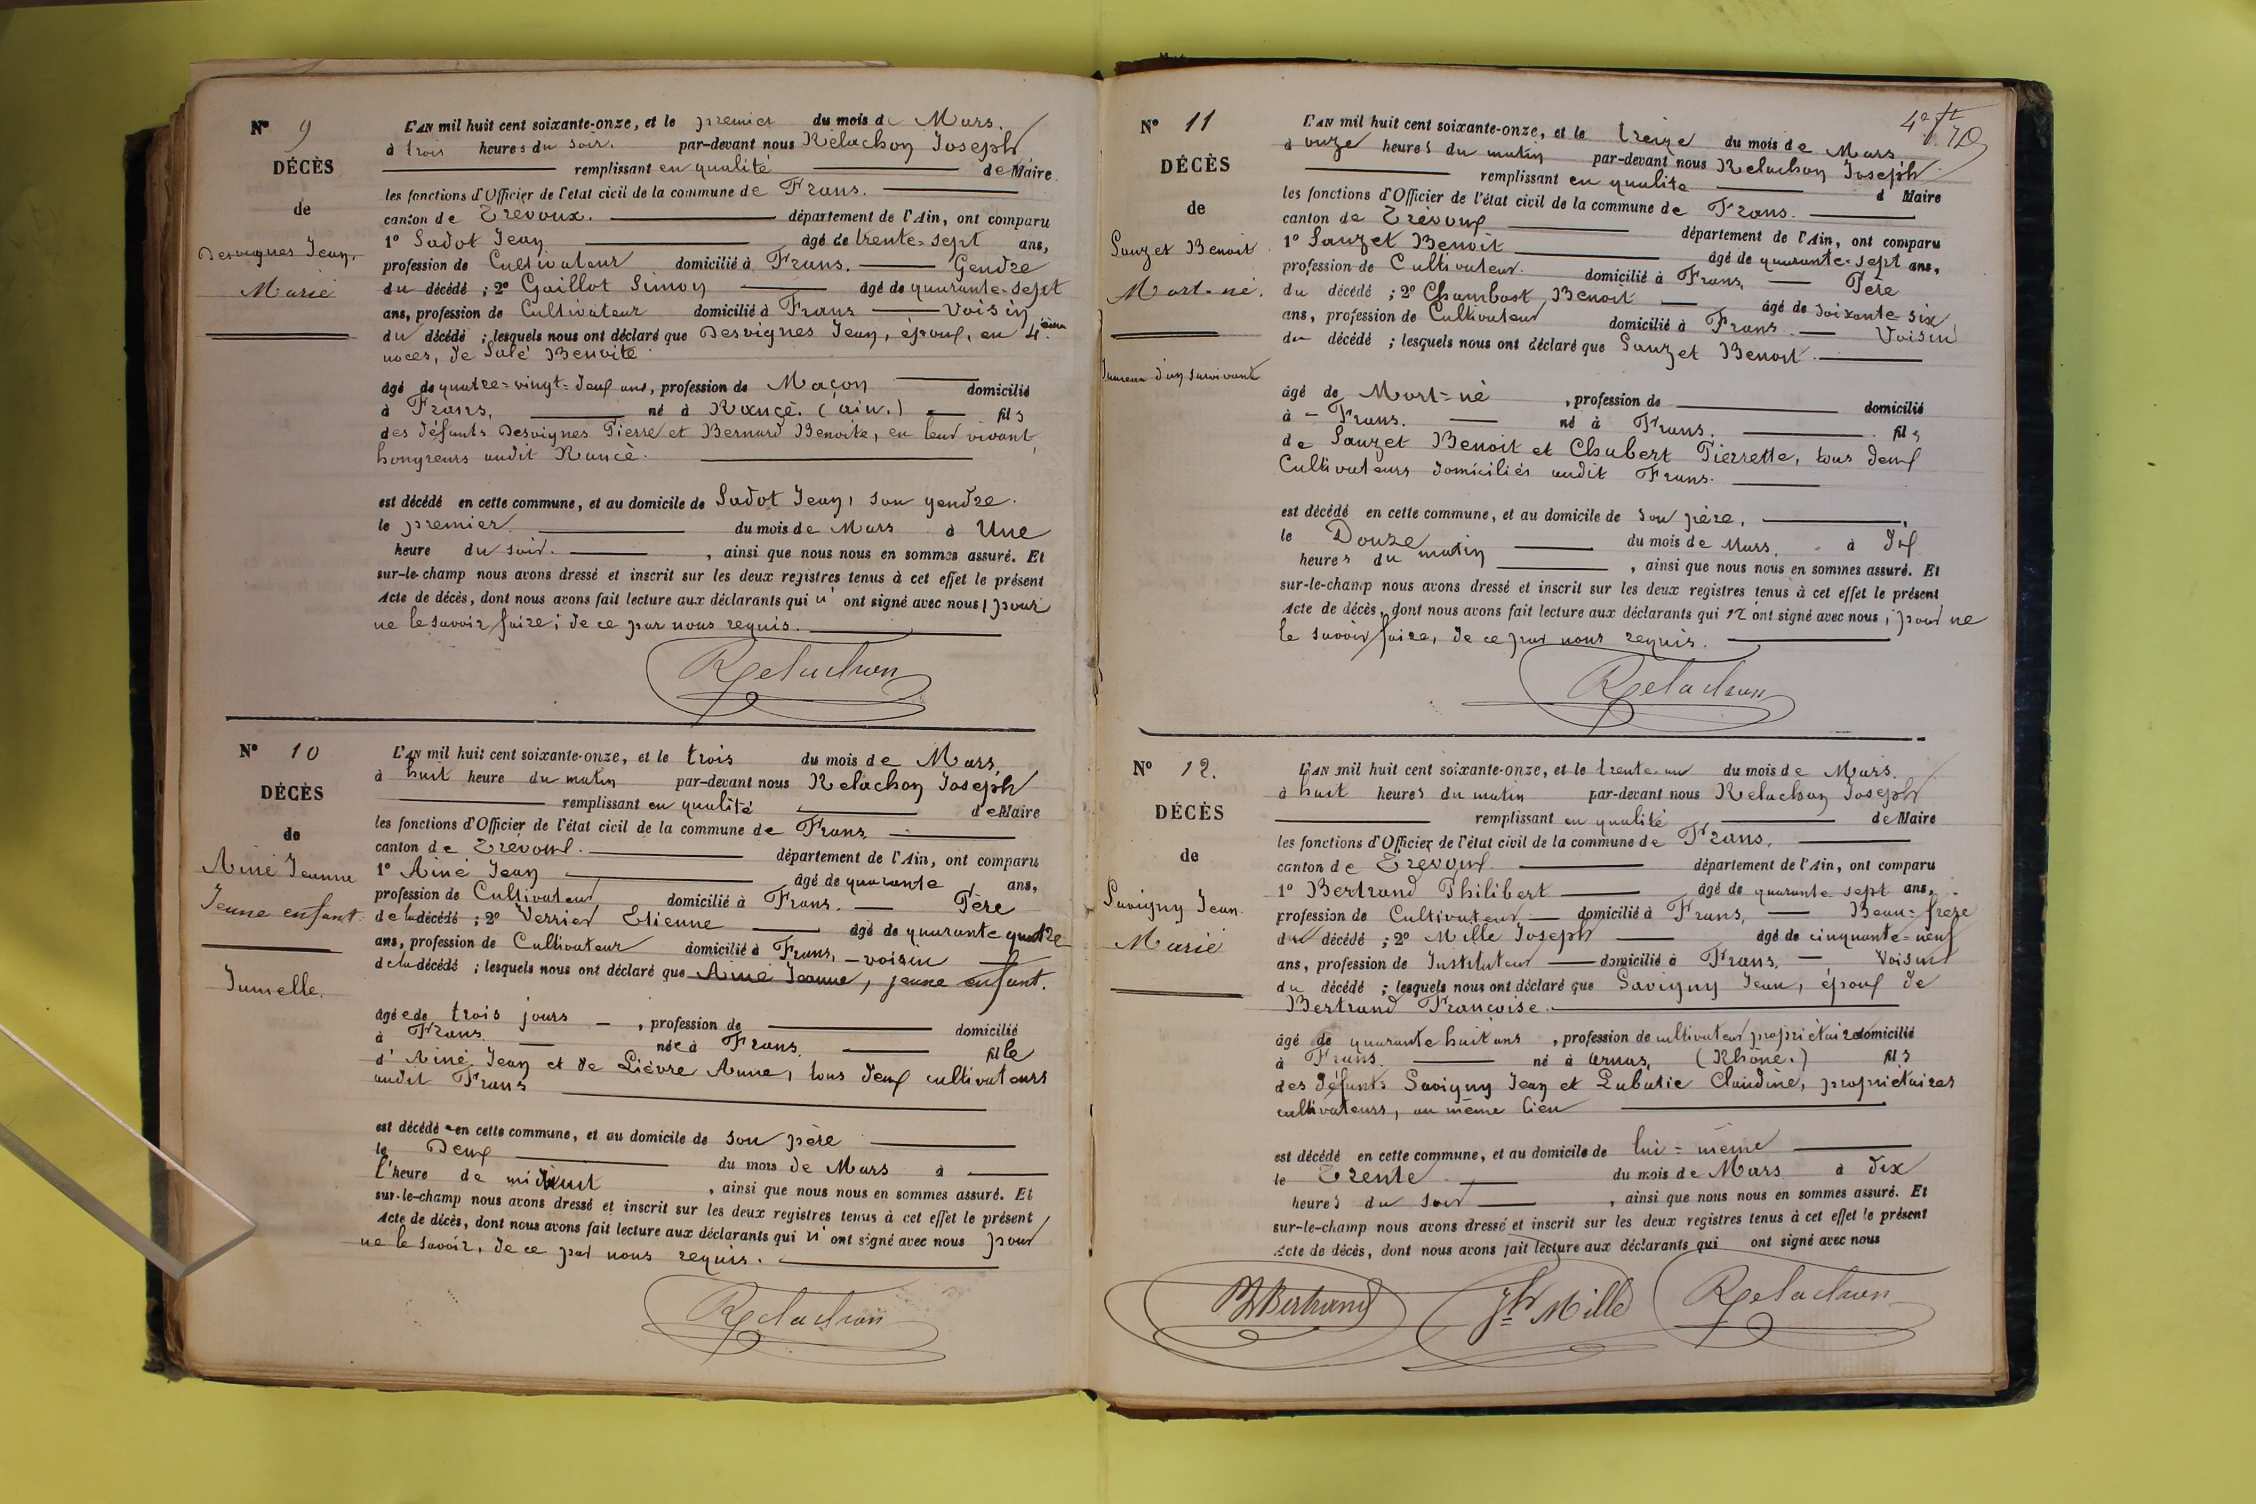 N° 9
DÉCÈS
de
Desvignes Jean,
Marié
L'AN mil huit cent soixante-onze, et le premier du mois de Mars.
à trois heures du soir. par-devant nous Rélachon Joseph
remplissant en qualité de Maire
les fonctions d'Officier de l'état civil de la commune de Frans.
canton de Trévoux. département de l'Ain, ont comparu
1° Sadot Jean âgé de trente-sept ans,
profession de Cultivateur domicilié à Frans. Gendre
du décédé ; 2° Gaillot Simon âgé de quarante-sept
ans, profession de Cultivateur domicilié à Frans Voisin
du décédé ; lesquels nous ont déclaré que Desvignes Jean, époux, en 4ème
noces, de Salé Benoite.
âgé de quatre-vingt-deux ans, profession de Maçon domicilié
à Frans, né à Rancé. (ain.) fils
des défunts Desvignes Pierre et Bernard Benoite, en leur vivant,
hongreurs audit Rancé.
est décédé en cette commune, et au domicile de Sadot Jean, son gendre.
le premier du mois de Mars à Une
heure du soir. , ainsi que nous nous en sommes assuré. Et
sur-le-champ nous avons dressé et inscrit sur les deux registres tenus à cet effet le présent
Acte de décès, dont nous avons fait lecture aux déclarants qui n' ont signé avec nous, pour
ne le savoir faire ; de ce par nous requis.
Relachon
N° 10
DÉCÈS
de
Ainé Jeanne
Jeune enfant.
Jumelle.
L'AN mil huit cent soixante-onze, et le trois du mois de Mars
à huit heure du matin par-devant nous Relachon Joseph
remplissant en qualité de Maire
les fonctions d'Officier de l'état civil de la commune de Frans
canton de Trévoux. département de l'Ain, ont comparu
1° Ainé Jean âgé de quarante ans,
profession de Cultivateur domicilié à Frans. Père
de la décédé ; 2° Verrier Etienne âgé de quarante quatre
ans, profession de Cultivateur domicilié à Frans, voisin
de la décédé ; lesquels nous ont déclaré que Ainé Jeanne, jeune enfant.
âgée de trois jours , profession de domicilié
à Frans. née à Frans. fille
d' Ainé Jean et de Lièvre Anne, tous deux cultivateurs
audit Frans
est décédée en cette commune, et au domicile de son père
le Deux du mois de Mars à
l'heure de minuit , ainsi que nous nous en sommes assuré. Et
sur-le-champ nous avons dressé et inscrit sur les deux registres tenus à cet effet le présent
Acte de décès, dont nous avons fait lecture aux déclarants qui n' ont signé avec nous pour
ne le savoir, de ce par nous requis.
Relachon
N° 11
DÉCÈS
de
Sauzet Benoit
Mort-né.
Jumeau d'un survivant
L'AN mil huit cent soixante-onze, et le treize du mois de Mars
à onze heures du matin par-devant nous Relachon Joseph
remplissant en qualité d Maire
les fonctions d'Officier de l'état civil de la commune de Frans.
canton de Trévoux département de l'Ain, ont comparu
1° Sauzet Benoit âgé de quarante-sept ans,
profession de Cultivateur. domicilié à Frans, Père
du décédé ; 2° Chambost Benoit âgé de soixante-six
ans, profession de Cultivateur domicilié à Frans. Voisin
du décédé ; lesquels nous ont déclaré que Sauzet Benoit.
âgé de Mort-né , profession de domicilié
à Frans. né à Frans. fils
de Sauzet Benoit et Chabert Pierrette, tous deux
Cultivateurs domiciliés audit Frans.
est décédé en cette commune, et au domicile de son père,
le Douze du mois de Mars. à dix
heures du matin , ainsi que nous nous en sommes assuré. Et
sur-le-champ nous avons dressé et inscrit sur les deux registres tenus à cet effet le présent
Acte de décès, dont nous avons fait lecture aux déclarants qui n' ont signé avec nous, pour ne
le savoir faire, de ce par nous requis.
Relachon
N° 12.
DÉCÈS
de
Savigny Jean
Marié
L'AN mil huit cent soixante-onze, et le trente-un du mois de Mars.
à huit heures du matin par-devant nous Relachon Joseph
remplissant en qualité de Maire
les fonctions d'Officier de l'état civil de la commune de Frans.
canton de Trévoux département de l'Ain, ont comparu
1° Bertrand Philibert âgé de quarante sept ans,
profession de Cultivateur domicilié à Frans, Beau-frère
du décédé ; 2° Mille Joseph âgé de cinquante-neuf
ans, profession de Instituteur domicilié à Frans, Voisin
du décédé ; lesquels nous ont déclaré que Savigny Jean, époux de
Bertrand Françoise.
âgé de quarante huit ans , profession de cultivateur propriétaire domicilié
à Frans. né à Arnas, (Rhône.) fils
des défunts Savigny Jean et Lubatie Claudine, propriétaires
cultivateurs, au même lieu
est décédé en cette commune, et au domicile de lui-même
le Trente du mois de Mars à dix
heures du soir , ainsi que nous nous en sommes assuré. Et
sur-le-champ nous avons dressé et inscrit sur les deux registres tenus à cet effet le présent
Acte de décès, dont nous avons fait lecture aux déclarants qui ont signé avec nous
Ph Bertrand Jh Mille Relachon